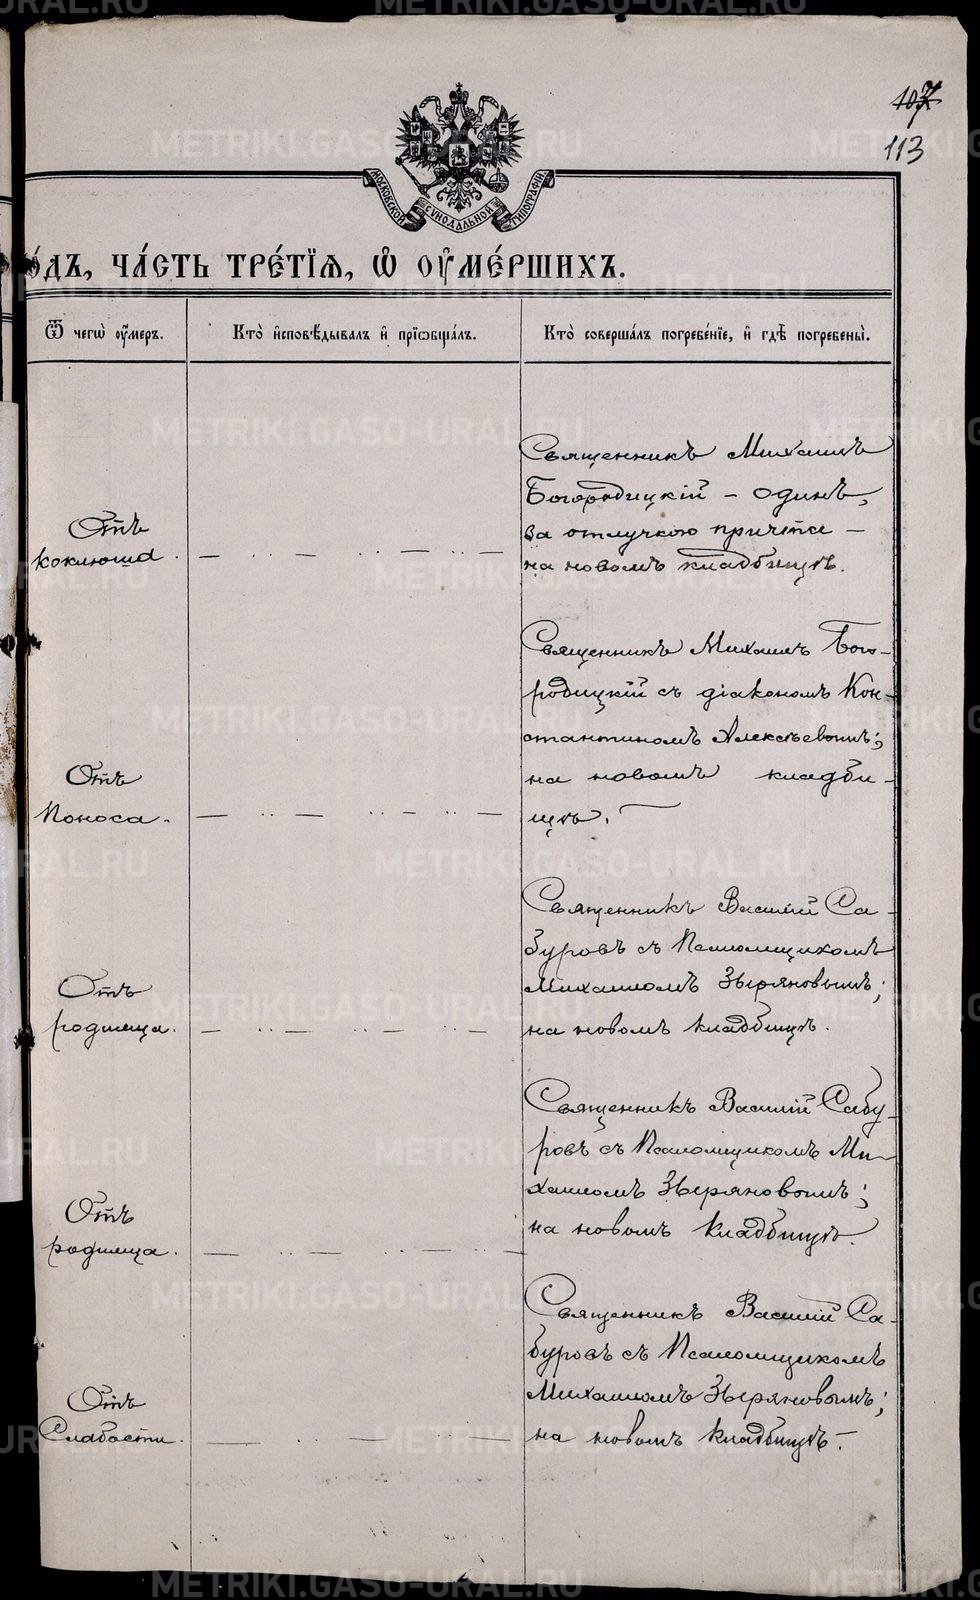 107
113
МОСКОВСКОЙ СѴНОДАЛЬНОЙ ТИПОГРАФІИ
О́ДЪ, ЧА́СТЬ ТРЕ́ТІѦ, Ѡ҆ ОУ҆МЕ́РШИХЪ.
Ѿ чегѡ̀ оу҆́меръ.
Кто̀ и҆сповѣ́дывалъ и҆ прїѡбща́лъ.
Кто̀ соверша́лъ погребе́нїе, и҆ гдѣ̀ погребены̀.
Отъ
коклюша.
Священникъ Михаилъ
Богородицкій – одинъ,
за отлучкою причта –
на новомъ кладбищѣ.
Отъ
Поноса.
Священникъ Михаилъ Бого-
родицкій съ діакономъ Кон-
стантиномъ Алексѣевымъ;
на новомъ кладби-
щѣ.
Отъ
родимца.
Священникъ Василій Са-
буровъ съ Псаломщикомъ
Михаиломъ Зыряновымъ;
на новомъ кладбищѣ.
Отъ
родимца.
Священникъ Василій Сабу-
ровъ съ Псаломщикомъ Ми-
хаиломъ Зыряновымъ;
на новомъ кладбищѣ.
Отъ
Слабости.
Священникъ Василій Са-
буровъ съ Псаломщикомъ
Михаиломъ Зыряновымъ;
на новомъ кладбищѣ.
METRIKI.GASO-URAL.RU